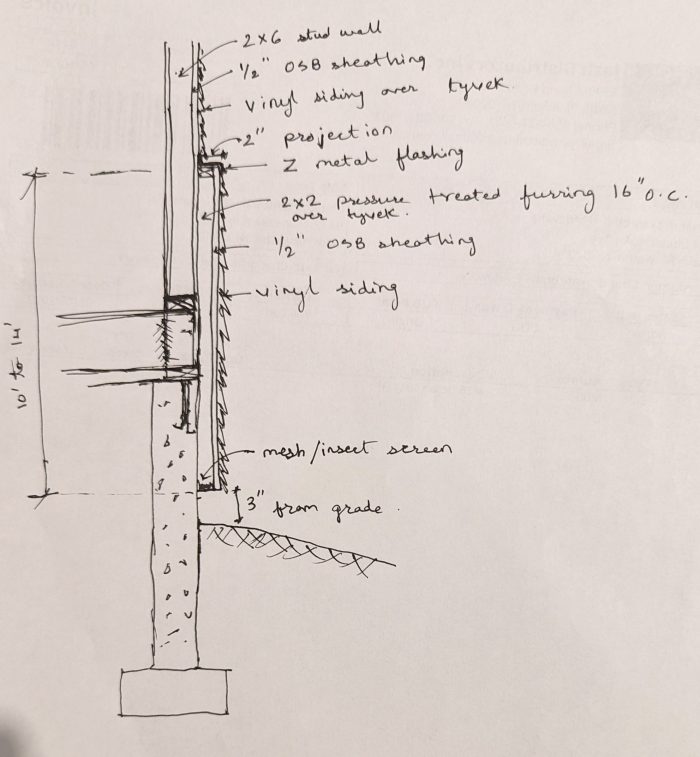 2x6 stud wall
1/2" OSB sheathing
vinyl siding over tyvek.
2" projection
Z metal flashing
2x2 pressure treated furring 16" o.c.
over tyvek.
1/2" OSB sheathing
vinyl siding
10' to 14'
mesh/insect screen
3" from grade.